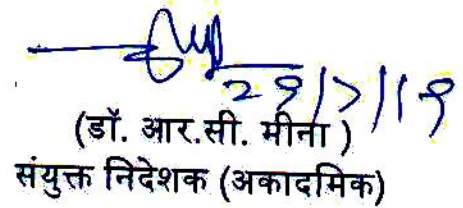 29/7/19
(डॉ. आर.सी. मीना )
संयुक्त निदेशक (अकादमिक)